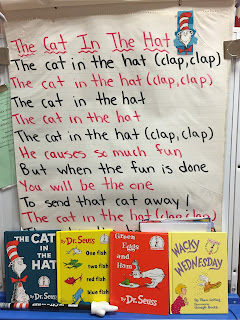 The Cat In The Hat
The cat in the hat (clap, clap)
The cat in the hat (clap, clap)
The cat in the hat
The cat in the hat
The cat in the hat (clap, clap)
He causes so much fun
But when the fun is done
You will be the one
To send that cat away!
The cat in the hat (clap, clap)
THE CAT
IN THE
HAT
By Dr. Seuss
One fish
two fish
red fish
blue fish
By Dr. Seuss
Green
Eggs
and
Ham
By Dr. Seuss
WACKY
WEDNESDAY